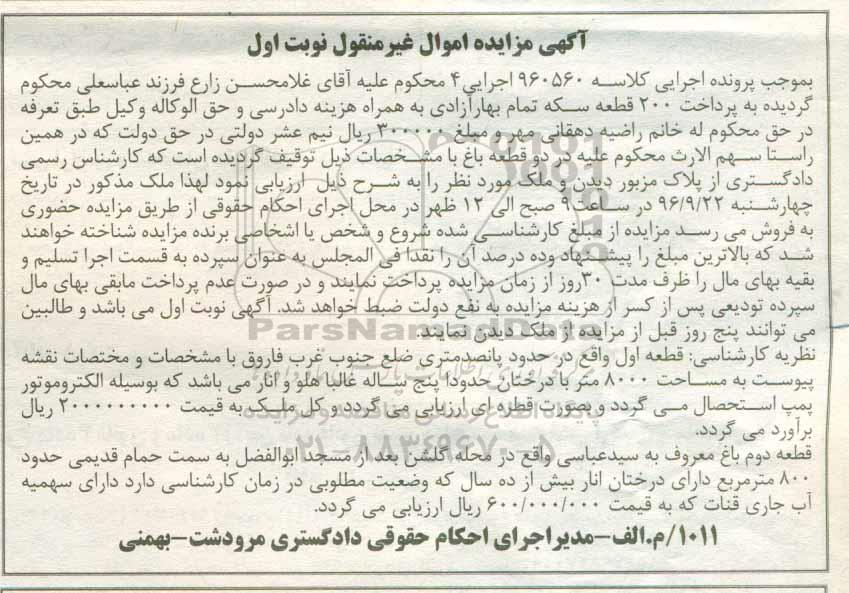 آگهی مزایده اموال غیرمنقول نوبت اول
بموجب پرونده اجرایی کلاسه ۹۶۰۵۶۰ اجرایی۴ محکوم علیه آقای غلامحسن زارع فرزند عباسعلی محکوم
گردیده به پرداخت ۲۰۰ قطعه سکه تمام بهارآزادی به همراه هزینه دادرسی و حق الوکاله وکیل طبق تعرفه
در حق محکوم له خانم راضیه دهقانی مهر و مبلغ ۳۰۰۰۰۰ ریال نیم عشر دولتی در حق دولت که در همین
راستا سهم الارث محکوم علیه در دو قطعه باغ با مشخصات ذیل توقیف گردیده است که کارشناس رسمی
دادگستری از پلاک مزبور دیدن و ملک مورد نظر را به شرح ذیل ارزیابی نمود لهذا ملک مذکور در تاریخ
چهارشنبه ۹۶/۹/۲۲ در ساعت۹ صبح الی ۱۲ ظهر در محل اجرای احکام حقوقی از طریق مزایده حضوری
به فروش می رسد مزایده از مبلغ کارشناسی شده شروع و شخص یا اشخاصی برنده مزایده شناخته خواهند
شد که بالاترین مبلغ را پیشنهاد وده درصد آن را نقدا فی المجلس به عنوان سپرده به قسمت اجرا تسلیم و
بقیه بهای مال را ظرف مدت ۳۰روز از زمان مزایده پرداخت نمایند و در صورت عدم پرداخت مابقی بهای مال
سپرده تودیعی پس از کسر از هزینه مزایده به نفع دولت ضبط خواهد شد. آگهی نوبت اول می باشد و طالبین
می توانند پنج روز قبل از مزایده از ملک دیدن نمایند.
ParsNamadData
نظریه کارشناسی: قطعه اول واقع در حدود پانصدمتری ضلع جنوب غرب فاروق با مشخصات و مختصات نقشه
پیوست به مساحت ۸۰۰۰ متر با درختان حدودا پنج ساله غالبا هلو و انار می باشد که بوسیله الکتروموتور
پمپ استحصال می گردد و بصورت قطره ای ارزیابی می گردد و کل ملک به قیمت ۲۰۰۰۰۰۰۰۰۰ ریال
برآورد می گردد.
۰۲۱-۸۸۳۴۹۶۷۰-۵
قطعه دوم باغ معروف به سیدعباسی واقع در محله گلشن بعد از مسجد ابوالفضل به سمت حمام قدیمی حدود
۸۰۰ مترمربع دارای درختان انار بیش از ده سال که وضعیت مطلوبی در زمان کارشناسی دارد دارای سهمیه
آب جاری قنات که به قیمت ۶۰۰/۰۰۰/۰۰۰ ریال ارزیابی می گردد.
۱۰۱۱/م.الف-مدیراجرای احکام حقوقی دادگستری مرودشت-بهمنی